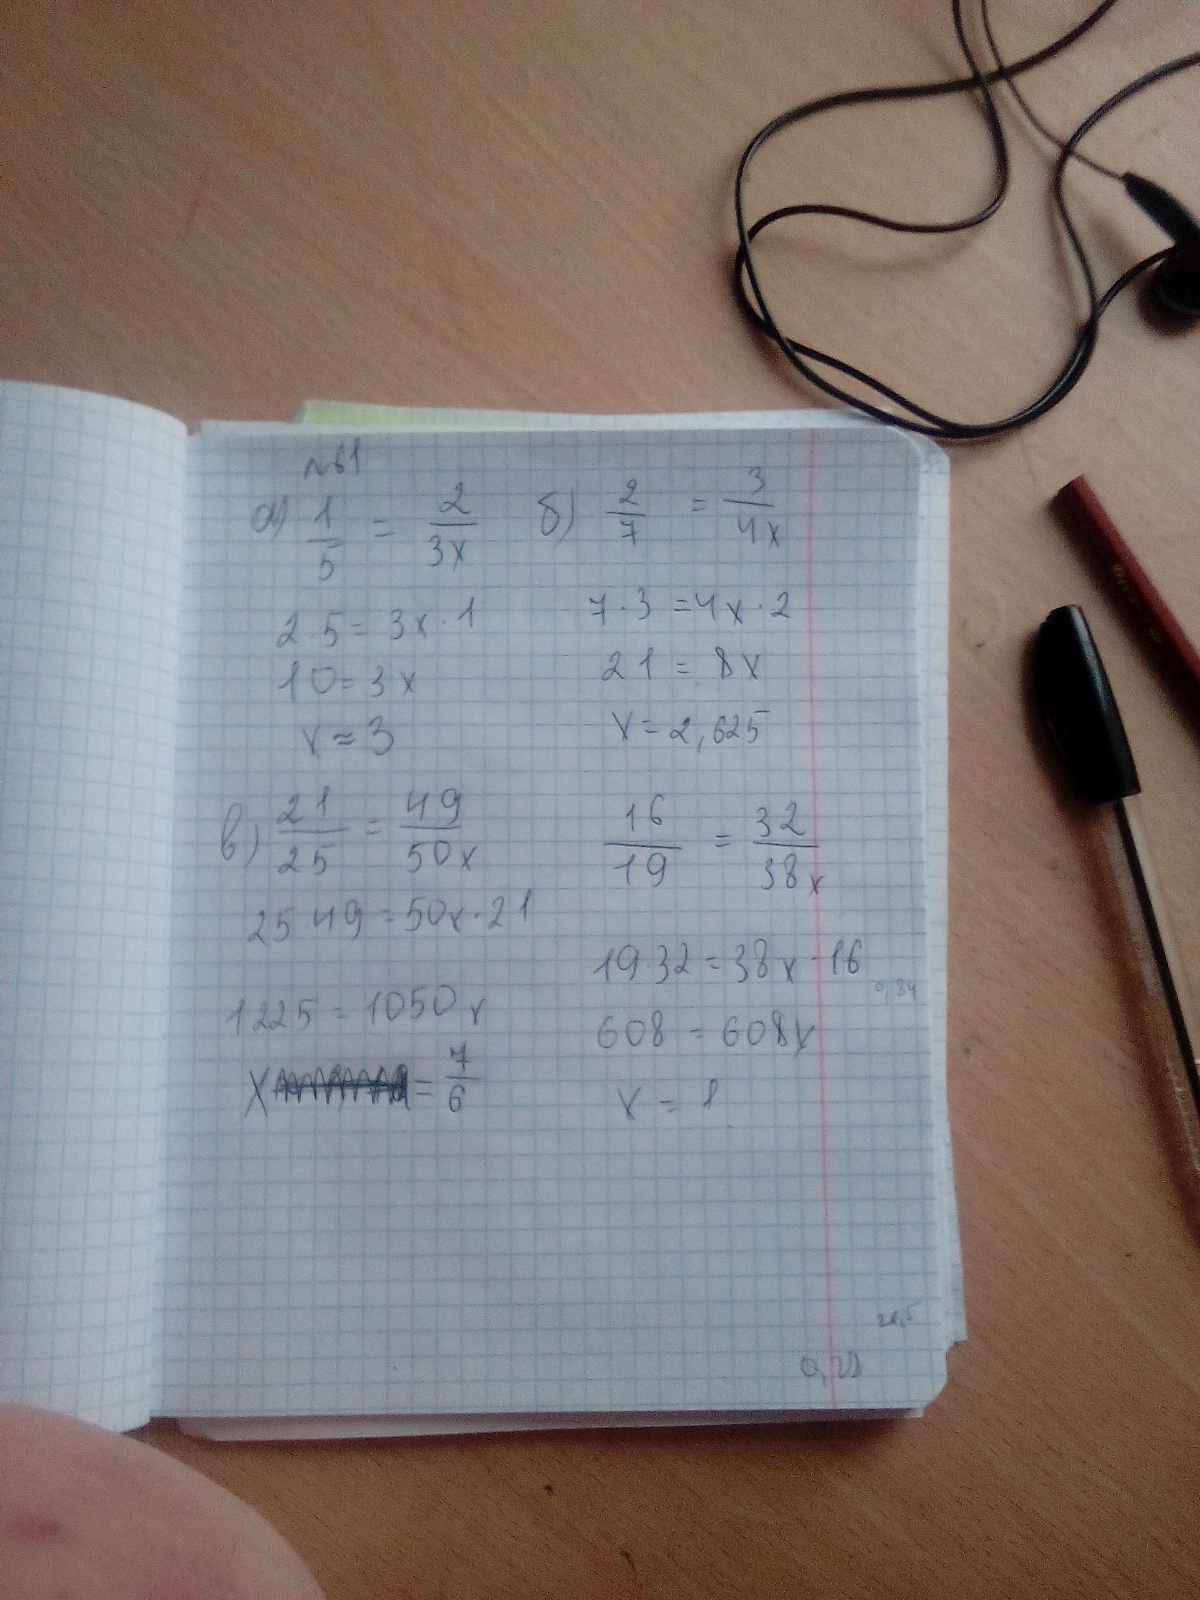 №61
а) 1/5 = 2/3x
2·5 = 3x·1
10 = 3x
x ≈ 3
б) 2/7 = 3/4x
7·3 = 4x·2
21 = 8x
x = 2,625
в) 21/25 = 49/50x
25·49 = 50x·21
1225 = 1050x
x = 7/6
16/19 = 32/38x
19·32 = 38x·16
608 = 608x
x = 1
0,84